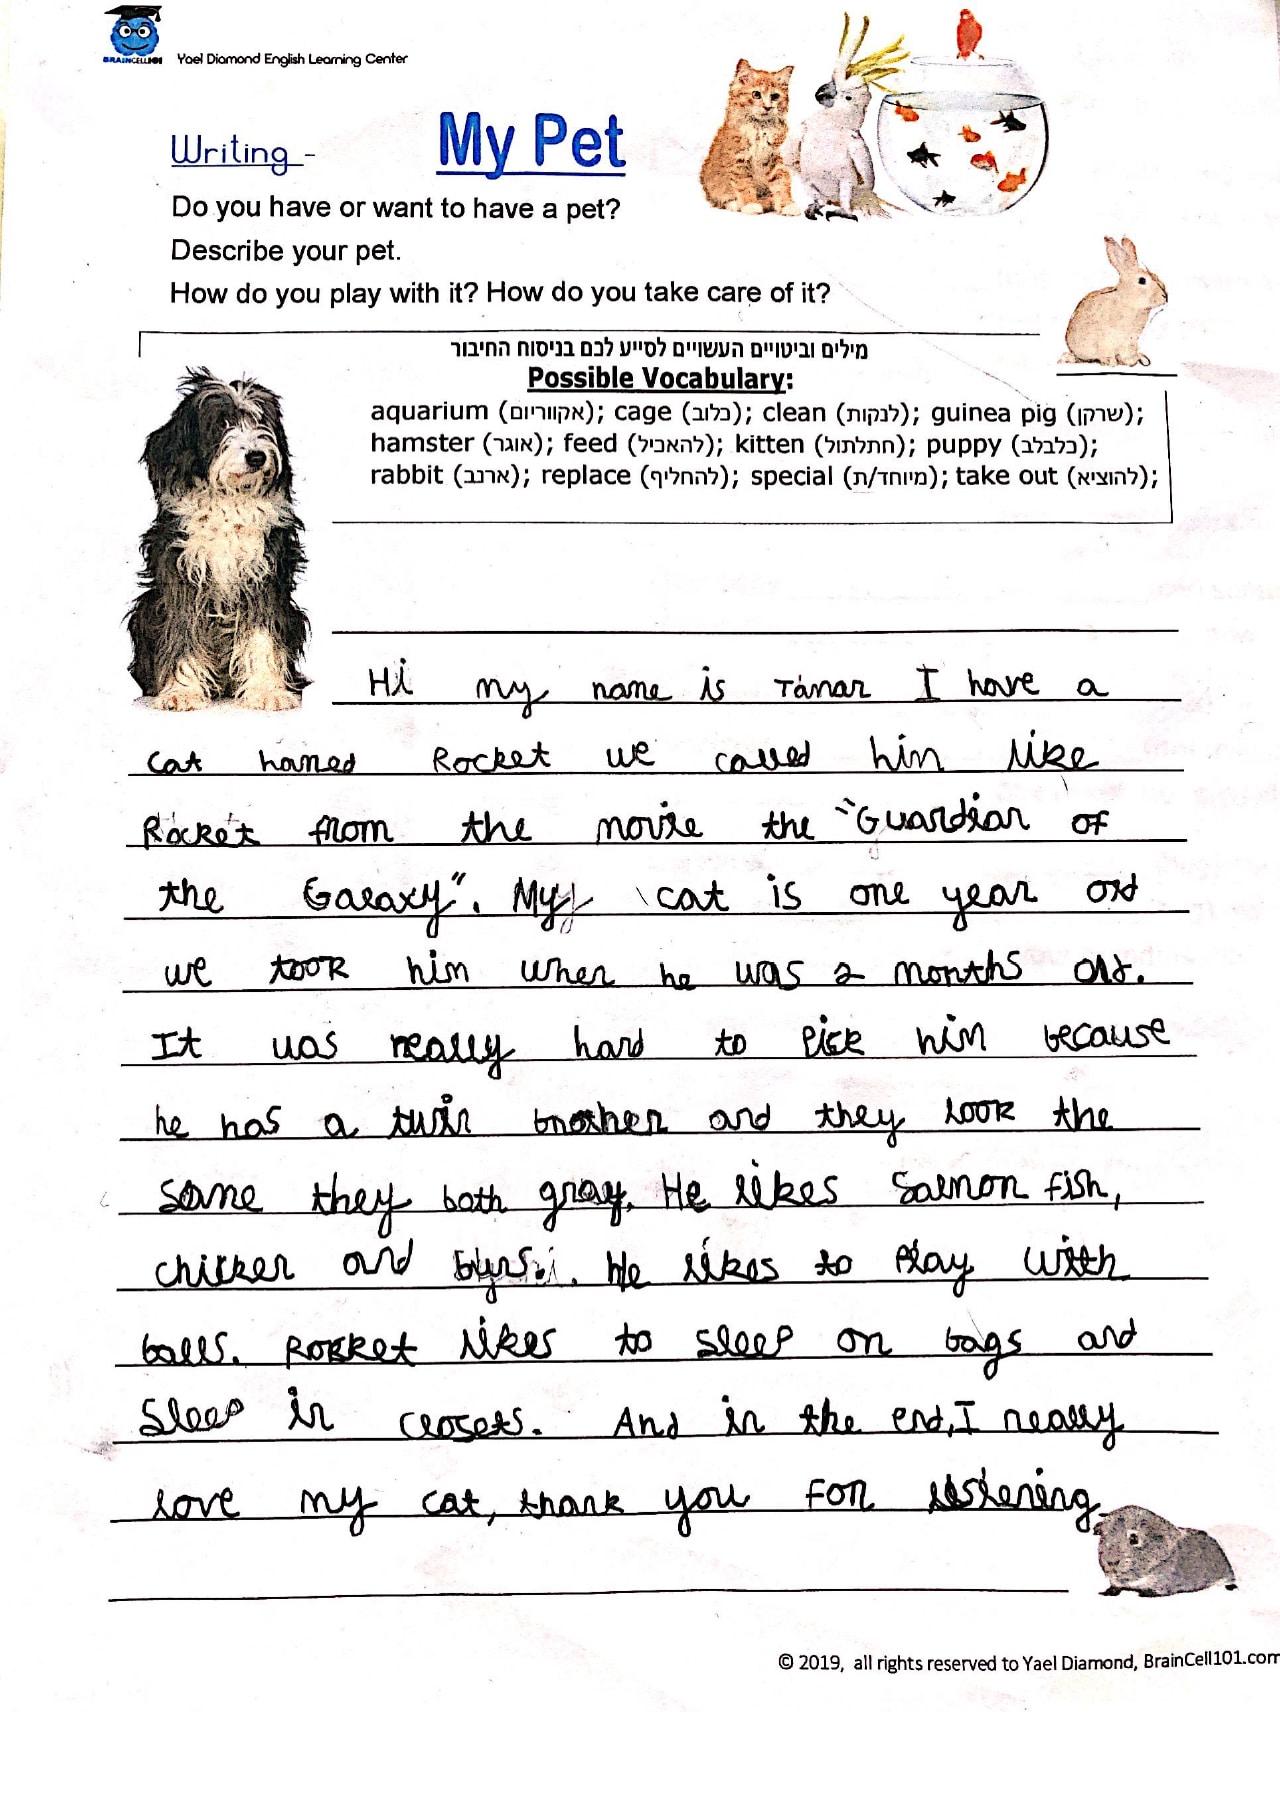 BRAINCELL101
Yael Diamond English Learning Center
Writing - My Pet
Do you have or want to have a pet?
Describe your pet.
How do you play with it? How do you take care of it?
מילים וביטויים העשויים לסייע לכם בניסוח החיבור
Possible Vocabulary:
aquarium (אקווריום); cage (כלוב); clean (לנקות); guinea pig (שרקן);
hamster (אוגר); feed (להאכיל); kitten (חתלתול); puppy (כלבלב);
rabbit (ארנב); replace (להחליף); special (מיוחד/ת); take out (להוציא);
Hi my name is Tamar I have a
cat named Rocket we called him like
Rocket from the movie the "Guardian of
the Galaxy". My cat is one year old
we took him when he was 2 months old.
It was really hard to pick him because
he has a twin brother and they look the
same they both gray. He likes Salmon fish,
chicken and . He likes to play with
balls. Rokket likes to sleep on bags and
sleep in closets. And in the end, I really
love my cat, thank you for listening
© 2019, all rights reserved to Yael Diamond, BrainCell101.com